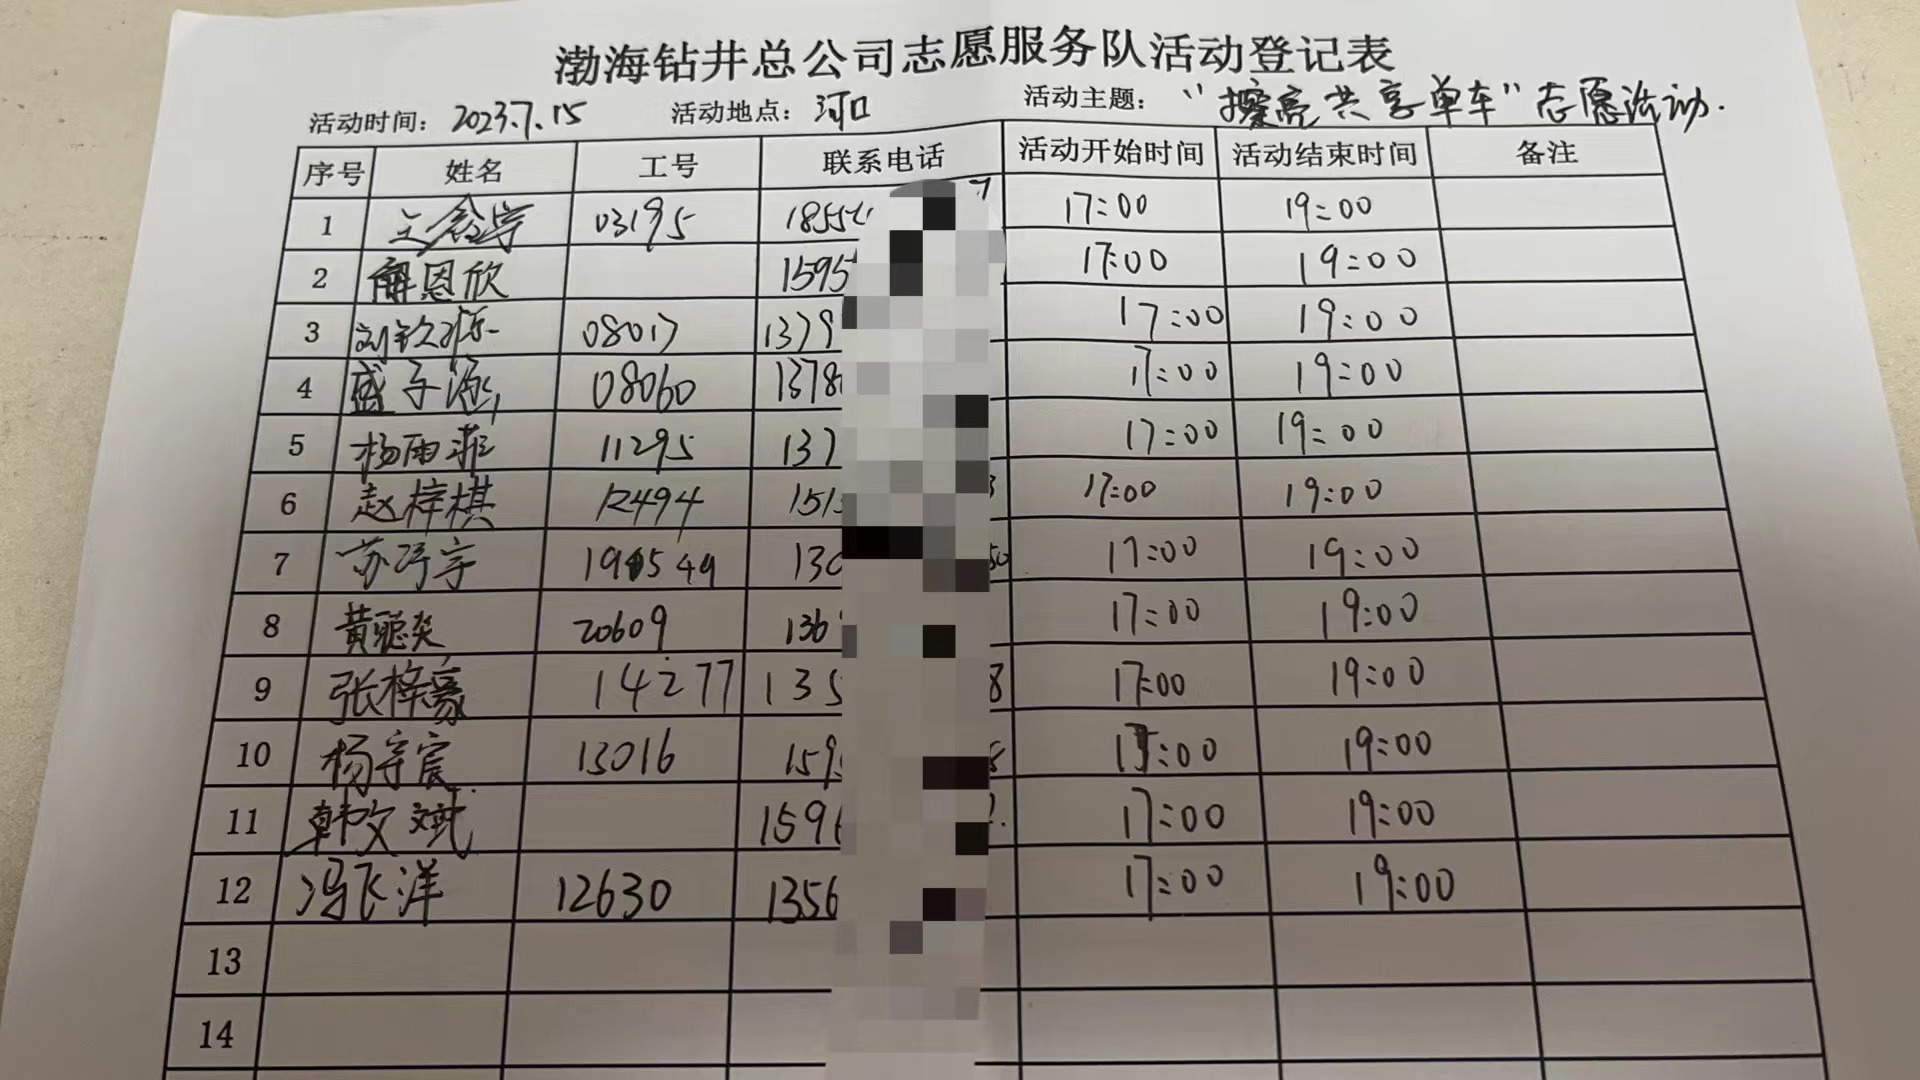 渤海钻井总公司志愿服务队活动登记表
活动时间：2023.7.15 活动地点：河口 活动主题："擦亮共享单车"志愿活动.
序号 姓名 工号 联系电话 活动开始时间 活动结束时间 备注
1 王鑫宇 03195 1855 17:00 19:00
2 解恩欣 1595 17:00 19:00
3 刘钦源 08017 1379 17:00 19:00
4 盛子涵 08060 1378 17:00 19:00
5 杨雨菲 11295 137 17:00 19:00
6 赵梓棋 12494 151 17:00 19:00
7 苏 宇 17:00 19:00
8 黄聪奕 20609 136 17:00 19:00
9 张梓豪 14277 135 8 17:00 19:00
10 杨宇宸 13016 159 :00 19:00
11 韩文斌 1596 17:00 19:00
12 冯飞洋 12630 1356 17:00 19:00
13
14